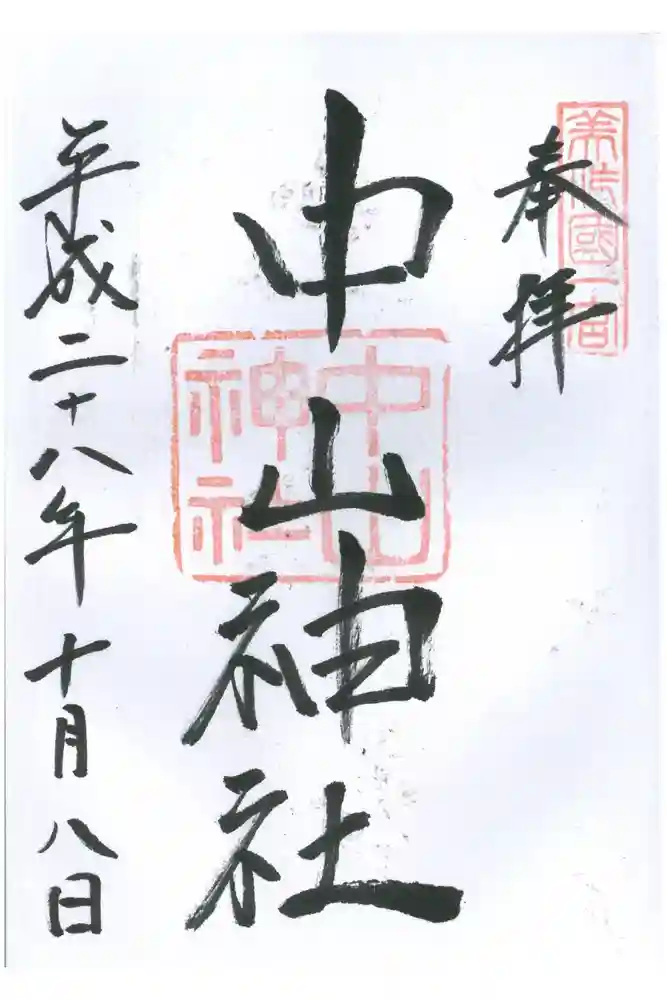 奉拝
美作國一宮
中山神社
中山
神社
平成二十八年十月八日